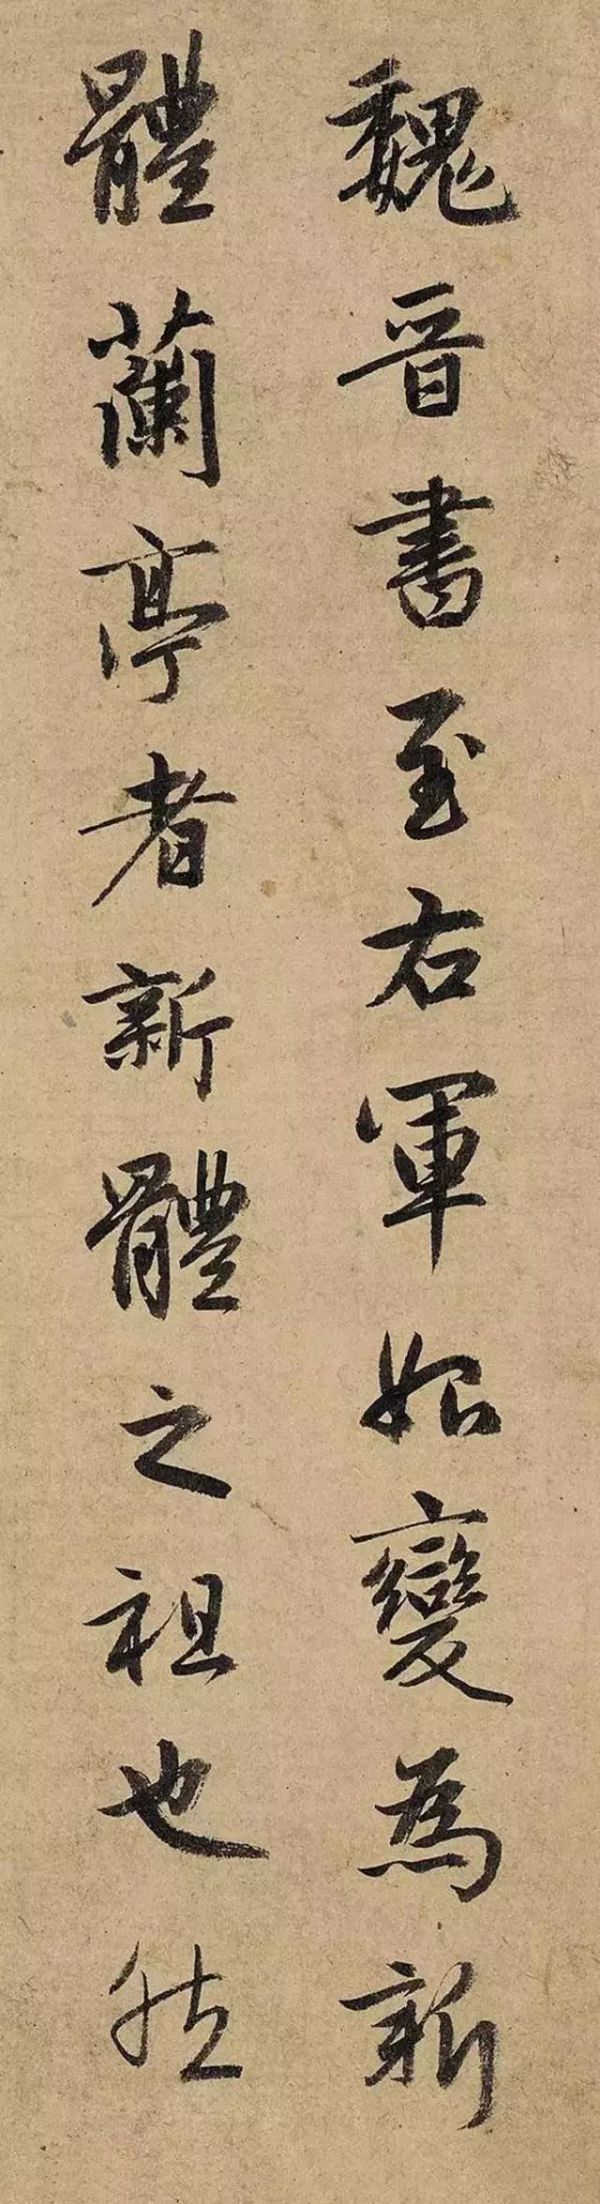 魏晋書至右軍始變為新
體蘭亭者新體之祖也然